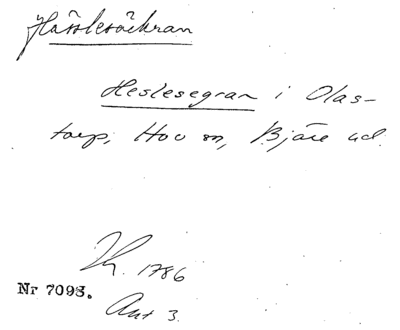 Hässlesäckran
Heslesegran i Olas-
torp, Hov sn, Bjäre hd.
1786
Nr 7093.
Akt 3.